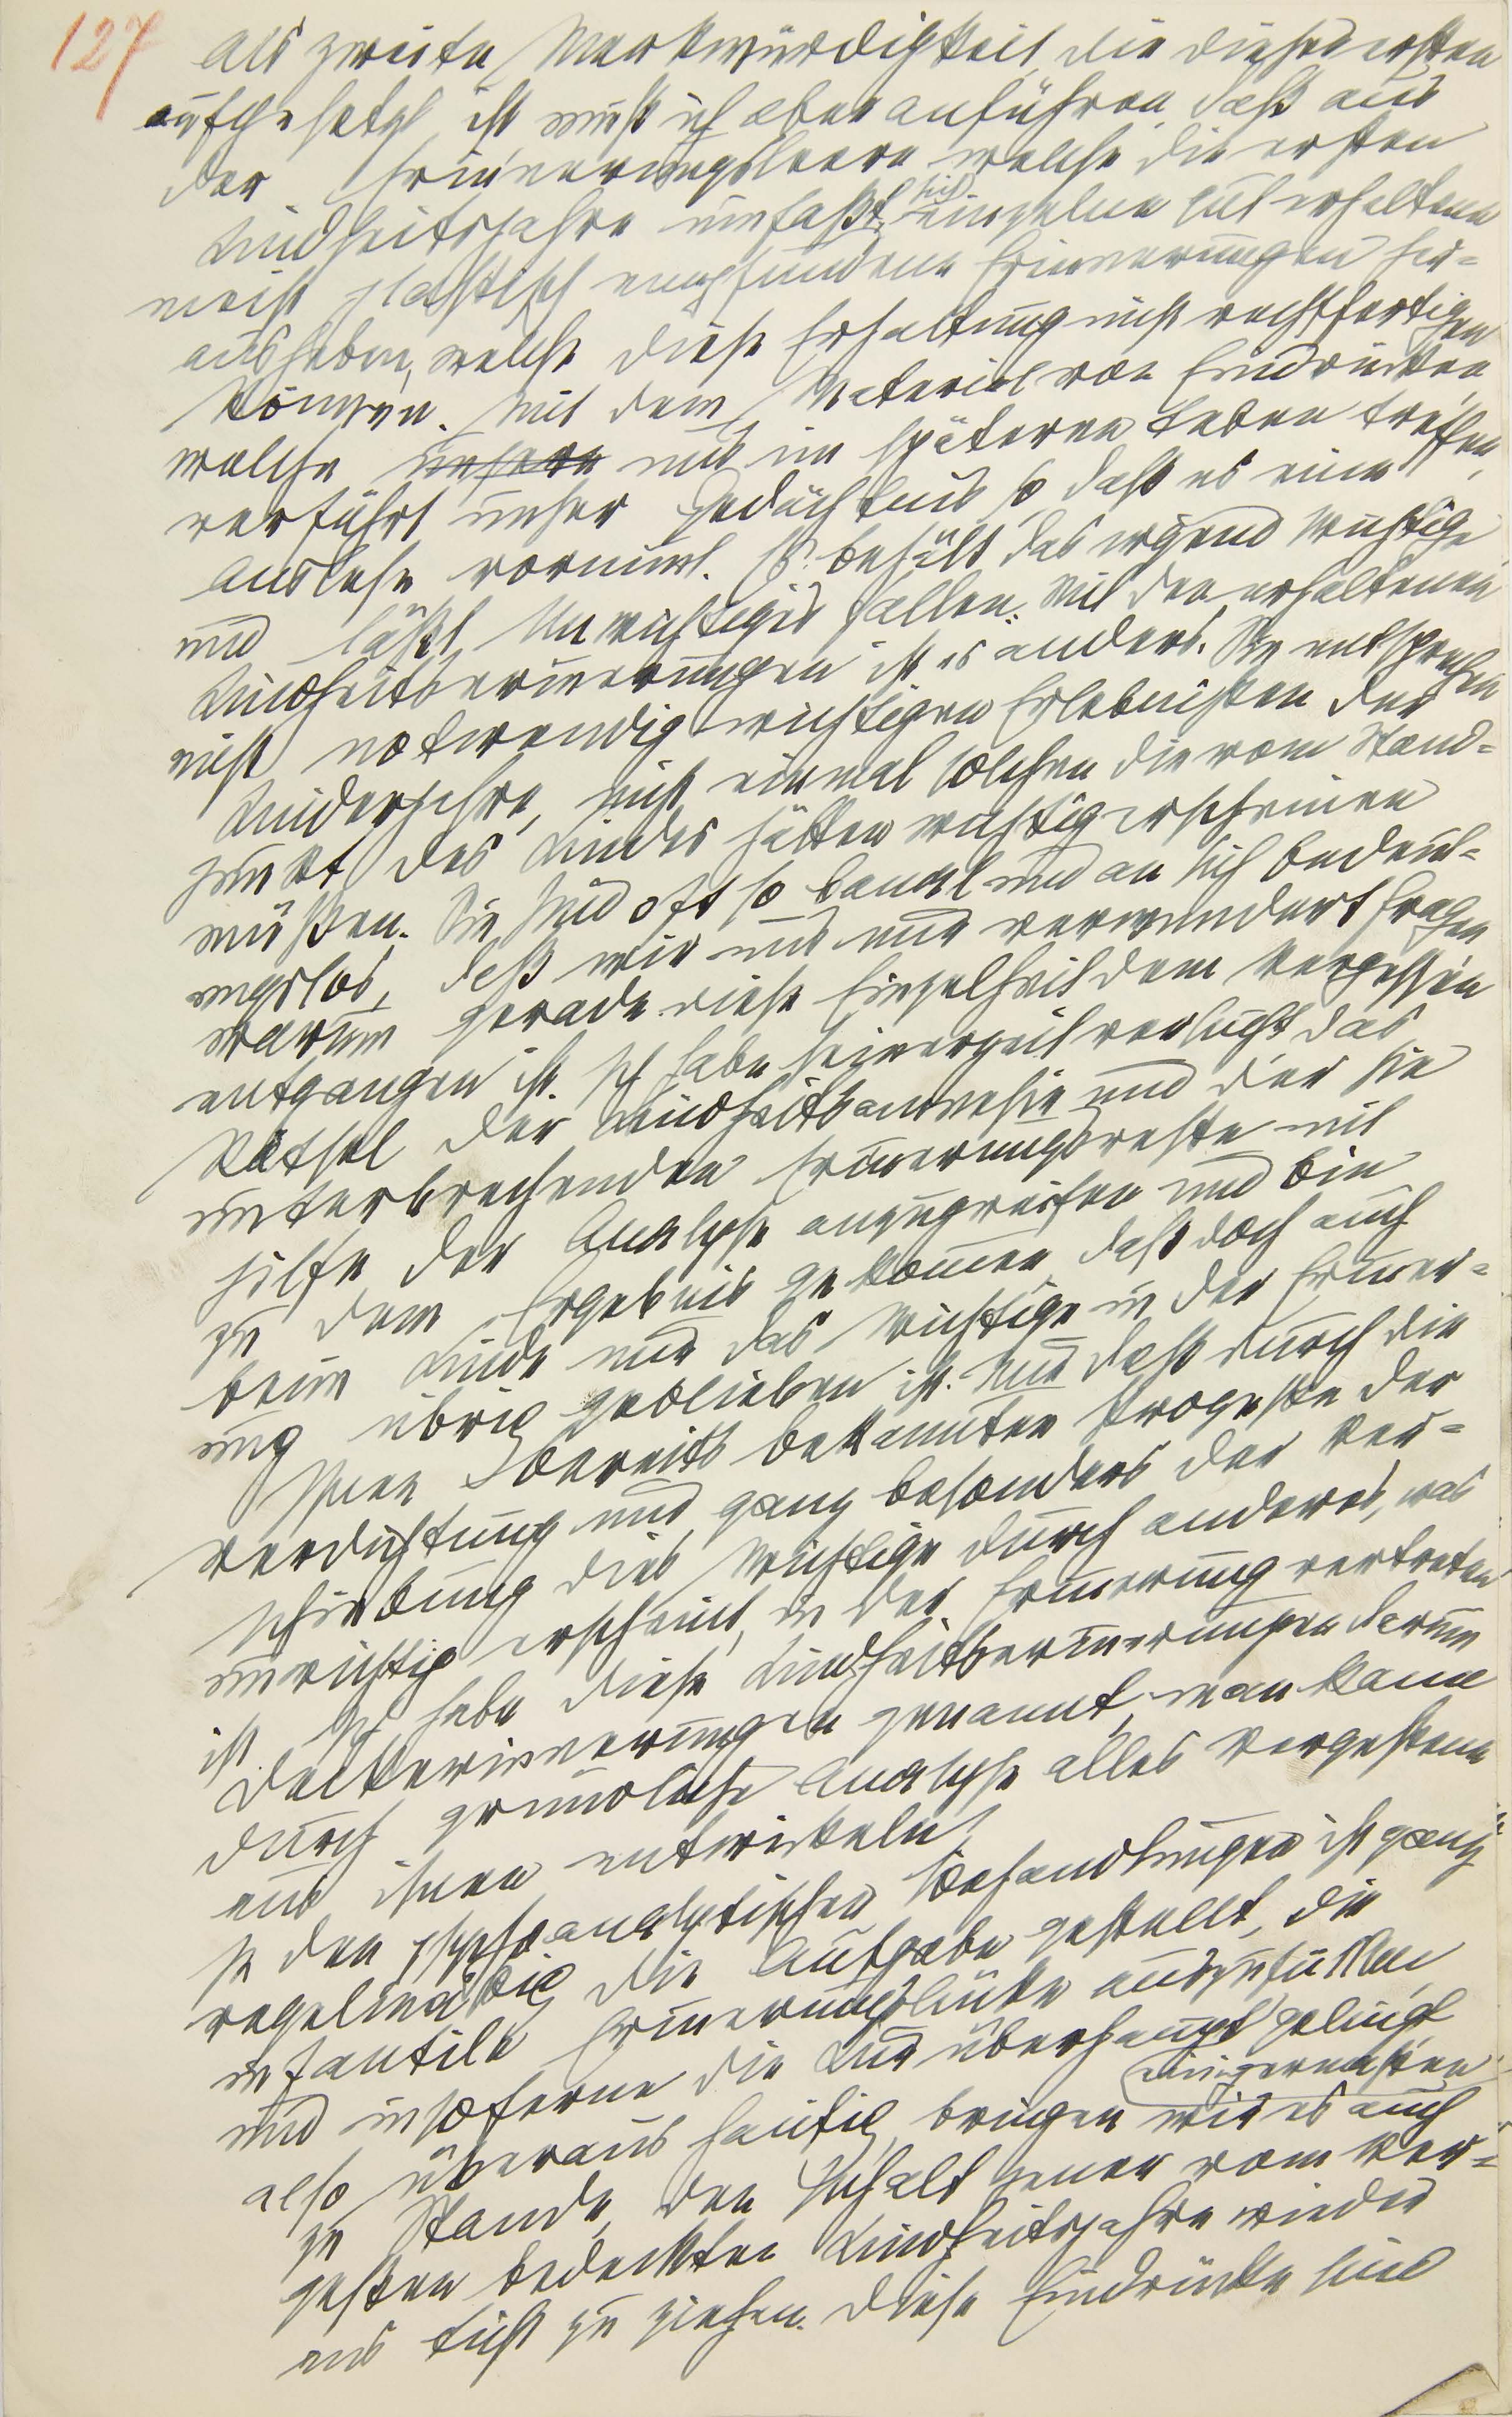 127
Als zweite Merkwürdigkeit die dieser ersten
aufgesetzt ist muß ich aber anführen, daß aus
der Erinnerungsleere welche die ersten
Kindheitsjahre umfaßt, sich einzelne gut erhaltene
meist plastisch empfundene Erinnerungen her-
ausheben, welche diese Erhaltung nicht rechtfertigen
können. Mit dem Material von Eindrücken
welche unsere uns im späteren Leben treffen,
verfährt unser Gedächtnis so, daß es eine
Auslese vornimt. Es behält das irgend Wichtige
und läßt Unwichtiges fallen. Mit den erhaltenen
Kindheitserinerungen ist es anders. Sie entsprechen
nicht notwendig wichtigen Erlebnißen der
Kinderjahre, nicht einmal solchen die vom Stand-
punkt des Kindes hätten wichtig erscheinen
müßen. Sie sind oft so banal und an sich bedeut-
ungslos, daß wir uns nur verwundert fragen
warum gerade diese Einzelheit dem Vergessen
entgangen ist. Ich habe seinerzeit versucht das
Rätsel der Kindheitsamnesie und der sie
unterbrechenden Erinerungsreste mit
Hilfe der Analyse anzugreifen und bin
zu dem Ergebnis gekomen, daß doch auch
beim Kinde nur das Wichtige in der Eriner-
ung übrig geblieben ist. Nur daß durch die
Ihnen bereits bekannten Prozeße der
Verdichtung und ganz besonders der Ver-
schiebung dies Wichtige durch anderes, was
unwichtig erscheint, in der Erinerung vertreten
ist. Ich habe diese Kindheitserinerungen darum
Deckerinnerungen genannt, man kann
durch gründliche Analyse alles Vergeßene
aus ihnen entwickeln.
In den psychoanalytischen Behandlungen ist ganz
regelmäßig die Aufgabe gestellt, die
infantile Erinerungslücke auszufüllen
und insoferne die Kur überhaupt einigermaßen gelingt
also überaus häufig, bringen wir es auch
zu Stande, den Inhalt jener vom Ver-
geßen bedeckten Kindheitsjahre wieder
ans Licht zu ziehen. Diese Eindrücke sind